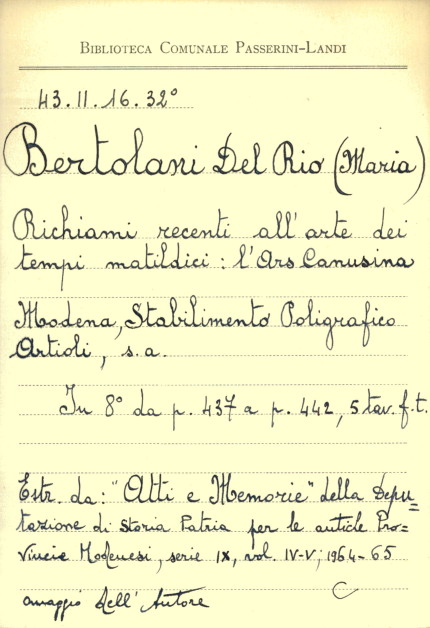 BIBLIOTECA COMUNALE PASSERINI-LANDI
43.II.16.32°
Bertolani Del Rio (Maria)
Richiami recenti all'arte dei
tempi matildici: l'Ars Canusina
Modena, Stabilimento Poligrafico
Artioli, s.a.
In 8° da p. 437 a p. 442, 5 tav. f.t.
Estr. da: "Atti e Memorie" della Depu=
tazione di Storia Patria per le antiche Pro=
vincie Modenesi, serie IX, vol. IV-V; 1964-65
omaggio dell'Autore C